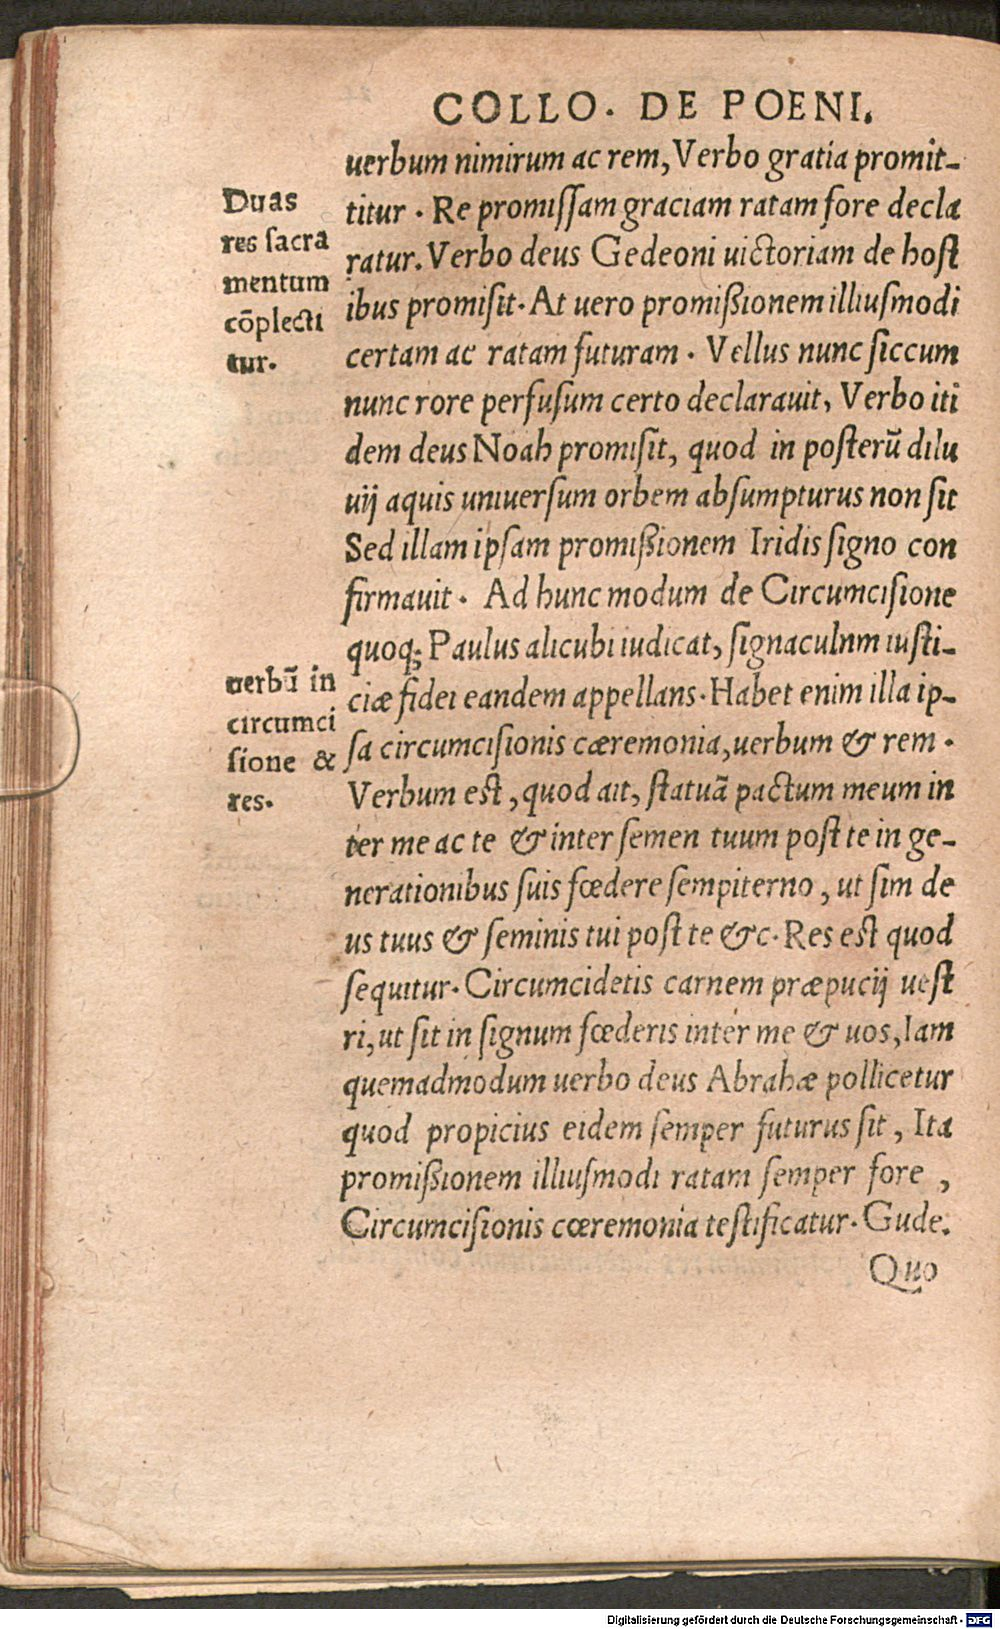 COLLO. DE POENI.
uerbum nimirum ac rem, Verbo gratia promit-
titur. Re promiſſam graciam ratam fore decla
ratur. Verbo deus Gedeoni uictoriam de hoſt
ibus promiſit. At uero promißionem illiuſmodi
certam ac ratam futuram. Vellus nunc ſiccum
nunc rore perfuſum certo declarauit, Verbo iti
dem deus Noah promiſit, quod in poſterū dilu
uij aquis uniuerſum orbem abſumpturus non ſit
Sed illam ipſam promißionem Iridis ſigno con
firmauit. Ad hunc modum de Circumciſione
quoq; Paulus alicubi iudicat, ſignaculnm iuſti-
ciæ fidei eandem appellans. Habet enim illa ip-
ſa circumciſionis cæremonia, uerbum & rem.
Verbum eſt, quod ait, ſtatuā pactum meum in
ter me ac te & inter ſemen tuum poſt te in ge-
nerationibus ſuis fœdere ſempiterno, ut ſim de
us tuus & ſeminis tui poſt te &c. Res eſt quod
ſequitur. Circumcidetis carnem præpucij ueſt
ri, ut ſit in ſignum fœderis inter me & uos, Iam
quemadmodum uerbo deus Abrahæ pollicetur
quod propicius eidem ſemper futurus ſit, Ita
promißionem illiuſmodi ratam ſemper fore,
Circumciſionis cœremonia teſtificatur. Gude.
Quo
Duas
res ſacra
mentum
cōplecti
tur.
uerbū in
circumci
ſione &
res.
Digitalisierung gefördert durch die Deutsche Forschungsgemeinschaft - DFG